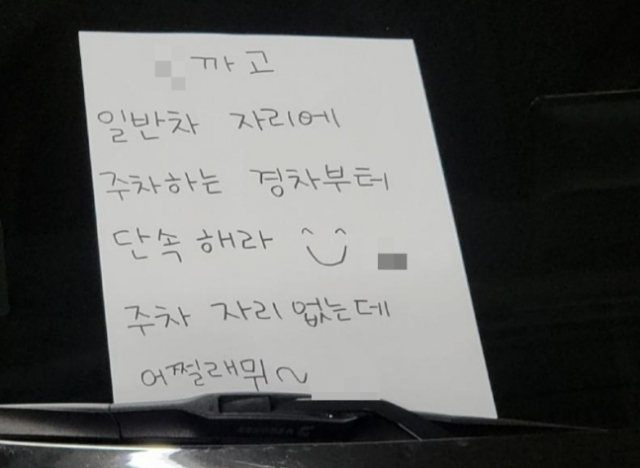 까고
일반차 자리에
주차하는 경차부터
단속해라
주차 자리 없는데
어쩔래뭐~